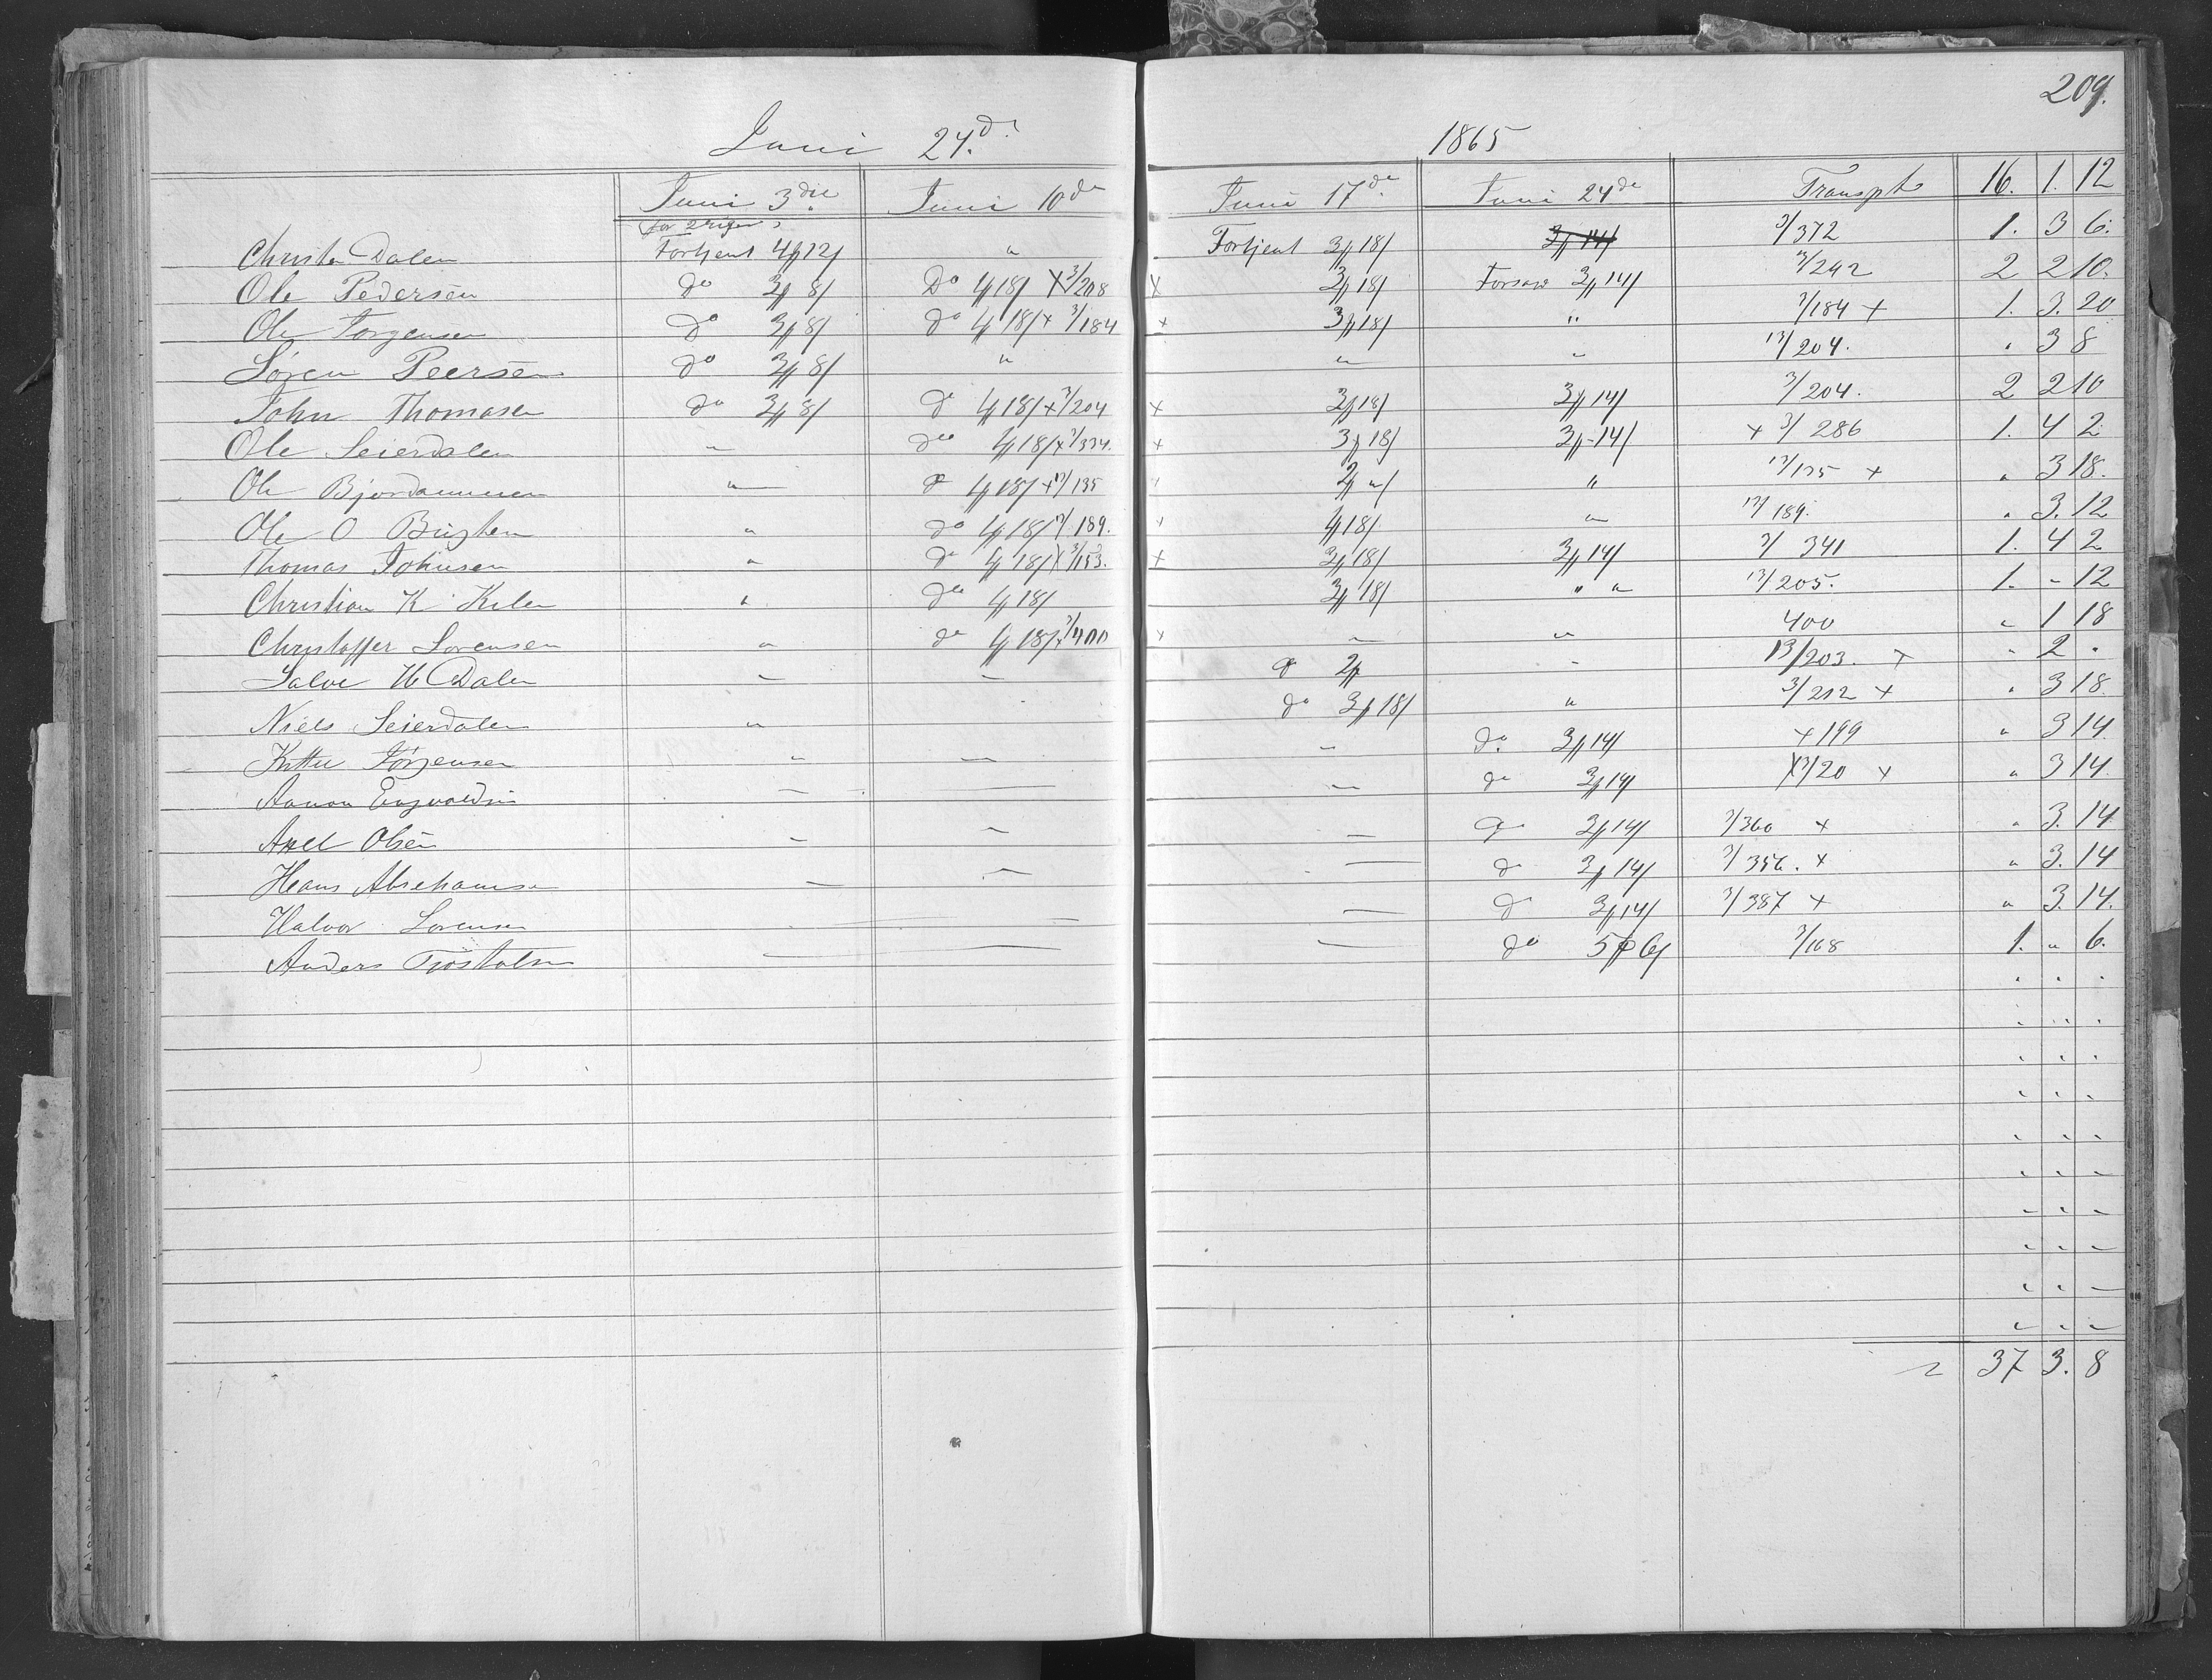 209.
Juni 24.d 1865
Juni 3die Juni 10de Juni 17de Juni 24de Transpt 16. 1. 12
Christen Dalen Fortjent 4 12/ " Fortjent 3 18/ 3 14/ 3/372 1. 3 6.
Ole Pedersen do 3 8/ Do 4 18/ X 3/208 X 3 18/ 3 14/ 3/242 2 2 10.
Ole Jorgensen do 3 8/ do 4 18/ x 3/184 x 3 18/ " 3/184 x 1. 3. 20
Søren Peersen do 3 8/ " " " 13/204. " 3 8
John Thomasen do 3 8/ do 4 18/ x 3/204 x 3 18/ 3 14/ 3/204. 2 2 10
Ole Seierdalen " do 4 18/ x 3/334. x 3 18/ 3 14/ x 3/286 1. 4 2
Ole Bjordammen " do 4 18/ x 13/135 2 "/ " 13/135 x " 3 18.
Ole O do 4 18/ 13/189. 4 18/ " 13/189. " 3. 12
Thomas Johnsen " do 4 18/ X 3/153. x 3 18/ 3 14/ 3/341 1. 4 2
Christian K Kilen " do 4 18/ 3 18/ " " 13/205. 1. - 12
Christoffer Sorensen " do 4 18/ x 3/400 x " " 400 " 1 18
Salve H Dalen " " do 2 " 13/203. x " 2 "
Niels Seierdalen " do 3 18/ " 3/212 x " 3 18
Jørgensen " — " do 3 14/ x 199 " 3 14
Aanon Engvoldsen — — — do 3 14/ X 3/20 x " 3 14
Axel Olsen — — — do 3 14/ 3/360 x " 3. 14
Hans Abrehamsen — — — do 3 14/ 3/356. x " 3. 14
Halvor Sorensen — — do 3 14/ 3/387 x " 3. 14.
Anders Tjostolsen — — — do 5 6/ 3/168 1. " 6.
37 3. 8